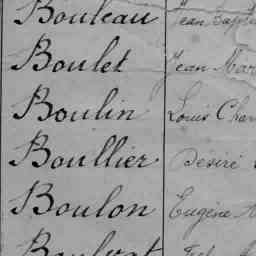 Bouleau Jean Bapti
Boulet Jean Mar
Boulin Louis Char
Boullier Désiré
Boulon Eugène A